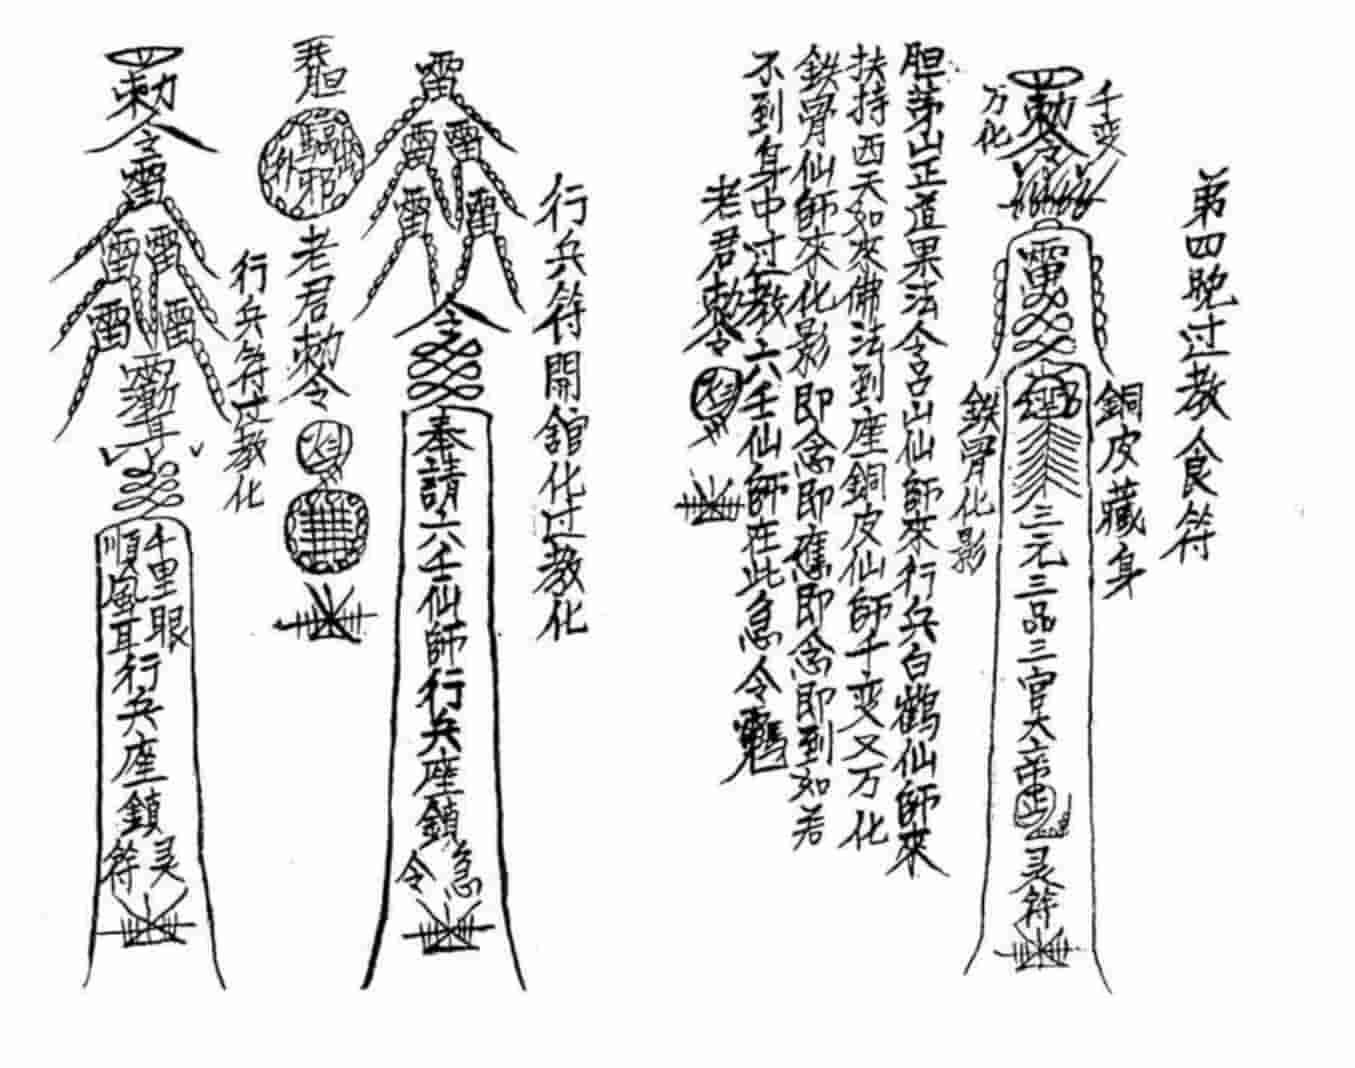 第四晚过教食符
千变
万化
勅令
雷
銅皮藏身
鉄骨化影
三元三品三官大帝正
灵符
胆茅山正道果法令召山仙師來行兵白鶴仙師來
扶持西天如來佛法到座銅皮仙師千变又万化
鉄骨仙師來化影即念即應即念即到如若
不到身中过教六壬仙師在此急令
老君勅令
行兵符開舘化过教化
雷
雷雷
雷雷
令
奉請六壬仙師行兵座鎮
急令
胆
邪
老君勅令
行兵符过教化
勅令
雷
雷雷
雷雷
千里眼
順風耳
行兵座鎮
灵符